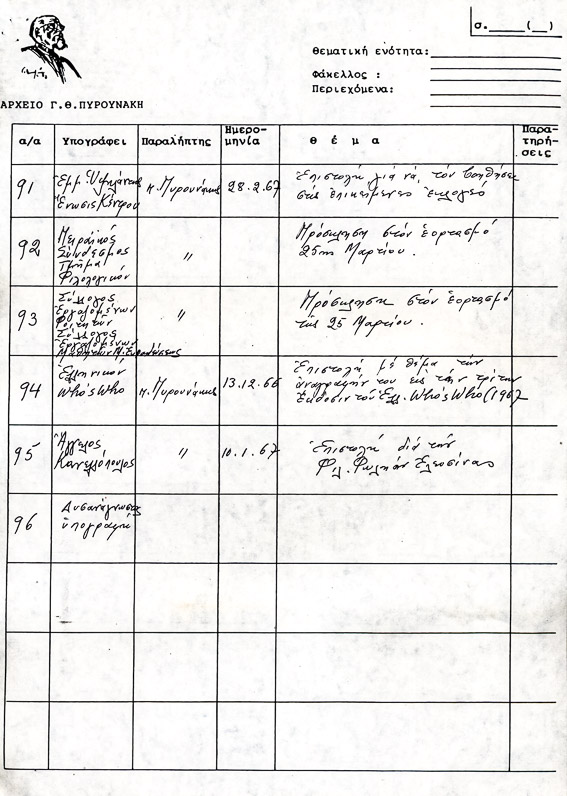 σ.____(__)
Θεματική ενότητα:
Φάκελλος :
Περιεχόμενα:
ΑΡΧΕΙΟ Γ.Θ.ΠΥΡΟΥΝΑΚΗ
α/α Υπογράφει Παραλήπτης Ημερο-μηνία θ έ μ α Παρα-τηρή-σεις
91 Ἐμμ. Ἕνωσις Κέντρου π. Πυρουνάκης 28.2.67 Ἐπιστολή γιά νά τόν βοηθήσει
στίς ἐπικείμενες ἐκλογές
92 Πειραϊκός
Σύνδεσμος
Τμῆμα
Φιλολογικόν
" Πρόσκληση στόν ἑορτασμό
25ης Μαρτίου.
93 Σύλλογος
Ἐργαζομένων
Φοιτητῶν
Σύλλογος
Ἐργαζομένων
Μαθητῶν
" Πρόσκληση στόν ἑορτασμό
τῆς 25 Μαρτίου.
94 Ἑλληνικόν
Who's Who
π. Πυρουνάκης 13.12.66 Ἐπιστολή μέ θέμα τήν
ἀναγραφήν του εἰς τήν τρίτην
ἔκδοσιν τοῦ Ἑλλ. Who's Who (1967
95 Ἄγγελος
Κανελλόπουλος
" 10.1.67 Ἐπιστολή διά τήν
Φιλ. Φωλεάν Ἐλευσίνας
96 Δυσανάγνωστη
ὑπογραφή